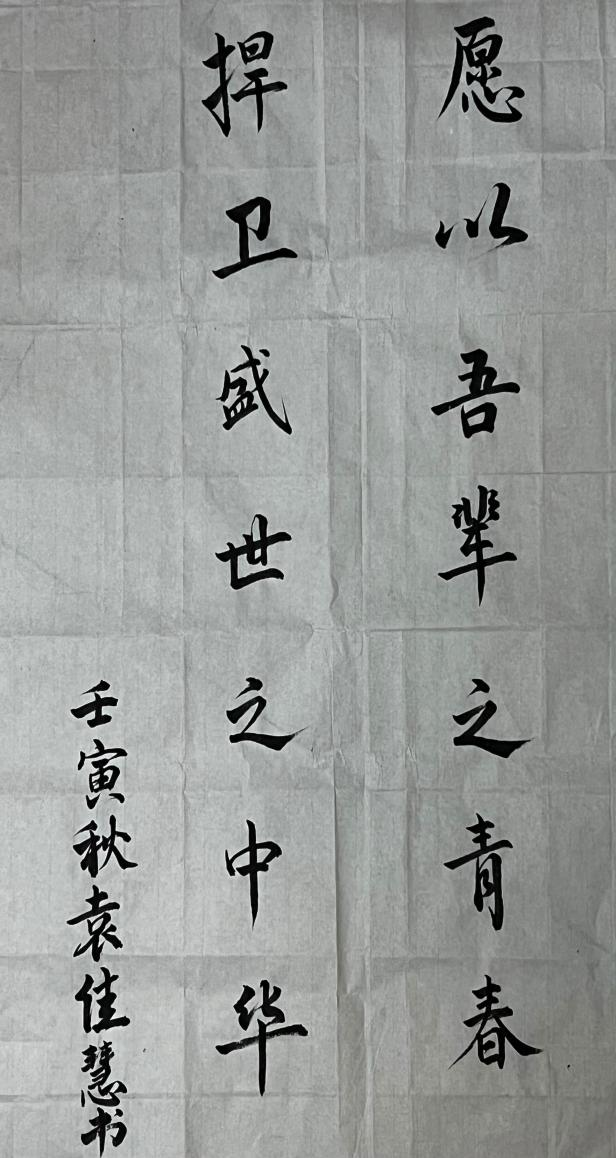 愿以吾辈之青春
捍卫盛世之中华
壬寅秋袁佳慧书